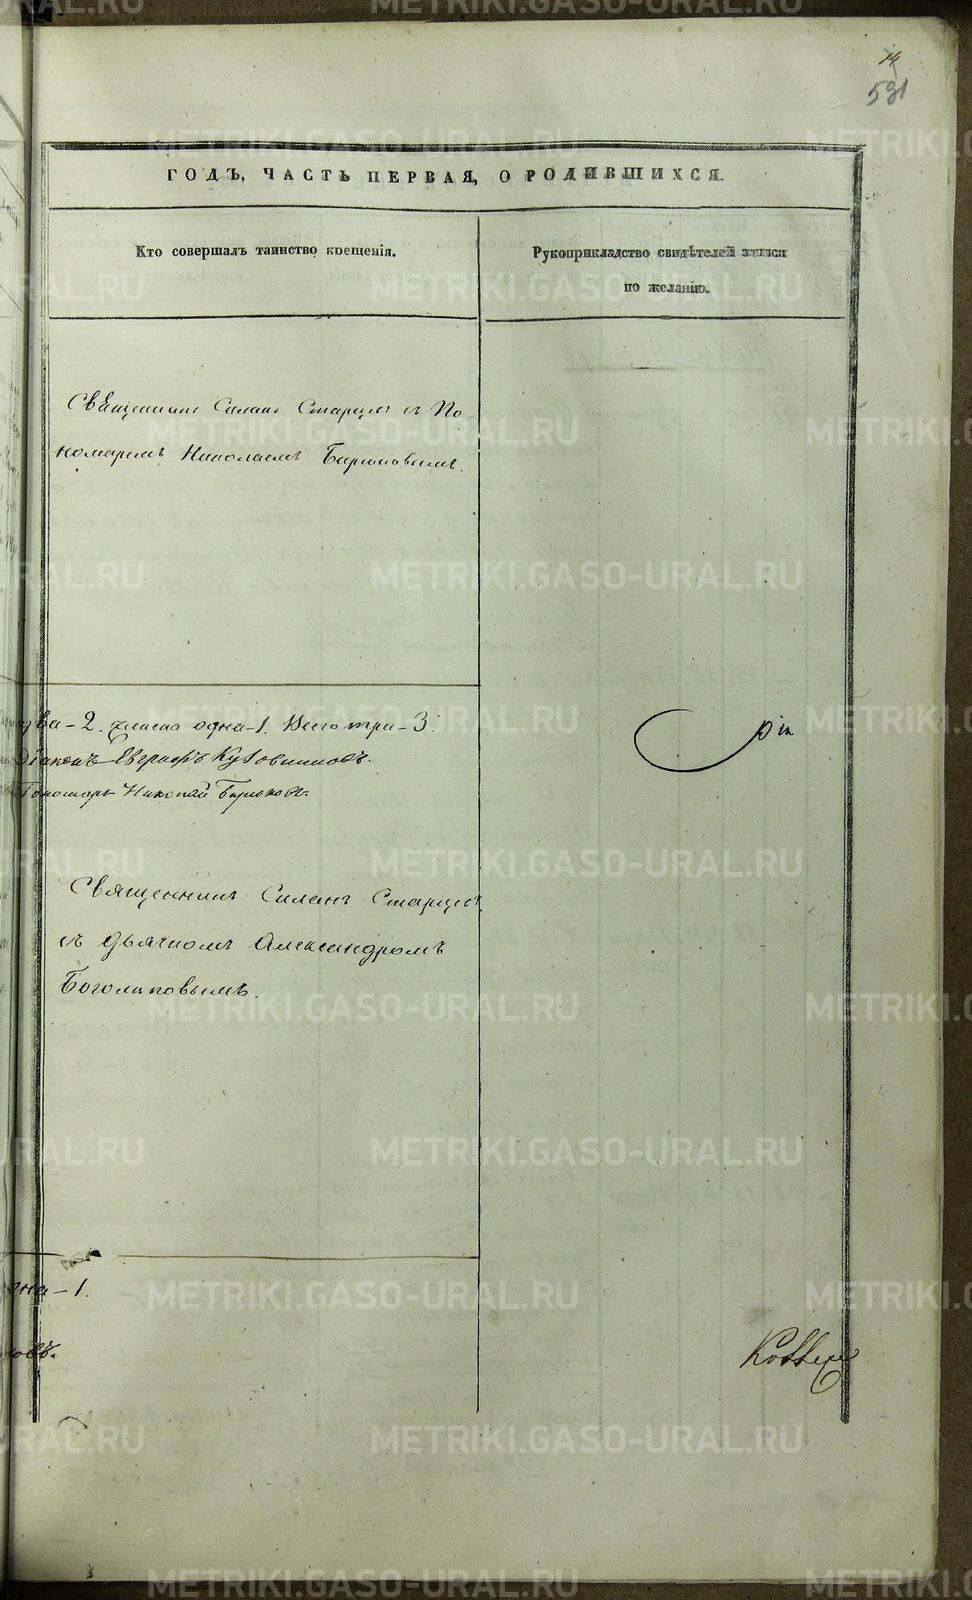 14
591
ГОДЪ, ЧАСТЬ ПЕРВАЯ, О РОДИВШИХСЯ.
Кто совершалъ таинство крещенія.
Рукоприкладство свидѣтелей записи
по желанію.
Священникъ Силанъ Старцевъ съ По-
номаремъ Николаемъ Бирюковымъ.
два-2. женска одна-1. Всего три-3.
Діаконъ Евграфъ Кузовниковъ.
Пономарь Николай Бирюковъ.
Священникъ Силанъ Старцевъ
съ дьячкомъ Александромъ
Боголѣповымъ.
одна-1.
овъ.
METRIKI.GASO-URAL.RU